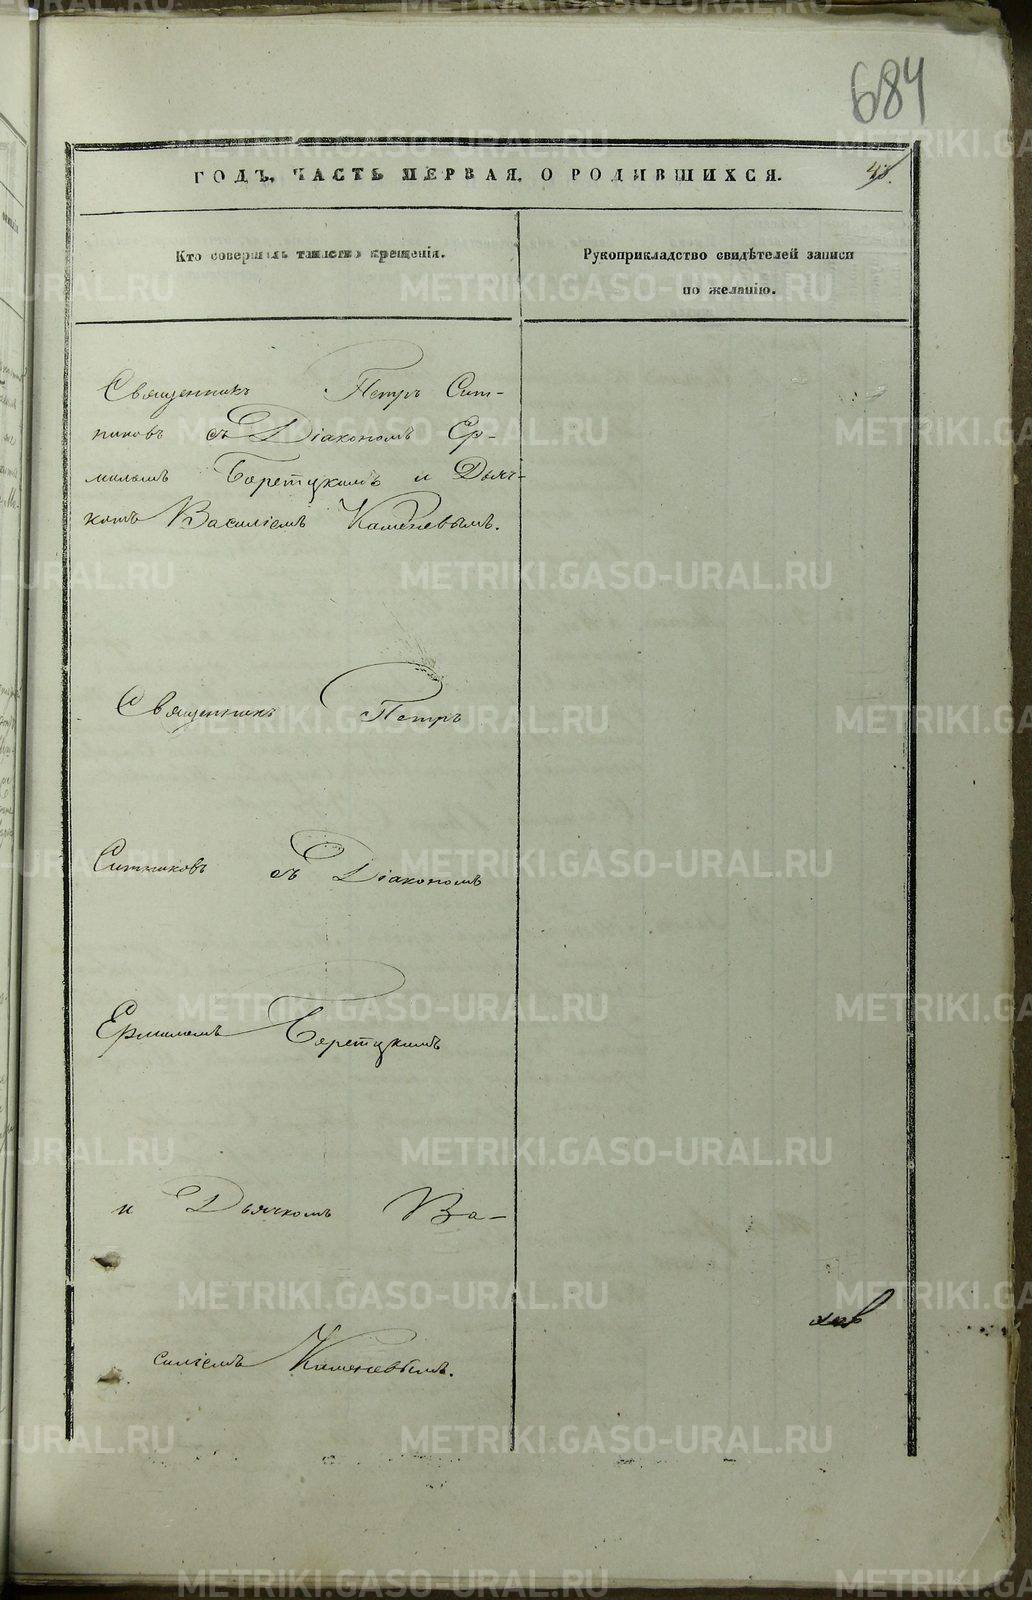 684
ГОДЪ, ЧАСТЬ ПЕРВАЯ, О РОДИВШИХСЯ.
Кто совершалъ таинство крещенія.
Рукоприкладство свидѣтелей записи
по желанію.
Священникъ Петръ Сит-
никовъ съ Діакономъ Ер-
миломъ Берецкимъ и Дьяч-
комъ Василіемъ Каменевымъ.
Священникъ Петръ
Ситниковъ съ Діакономъ
Ермиломъ
и Дьячкомъ Ва-
силіемъ Каменевымъ.
METRIKI.GASO-URAL.RU